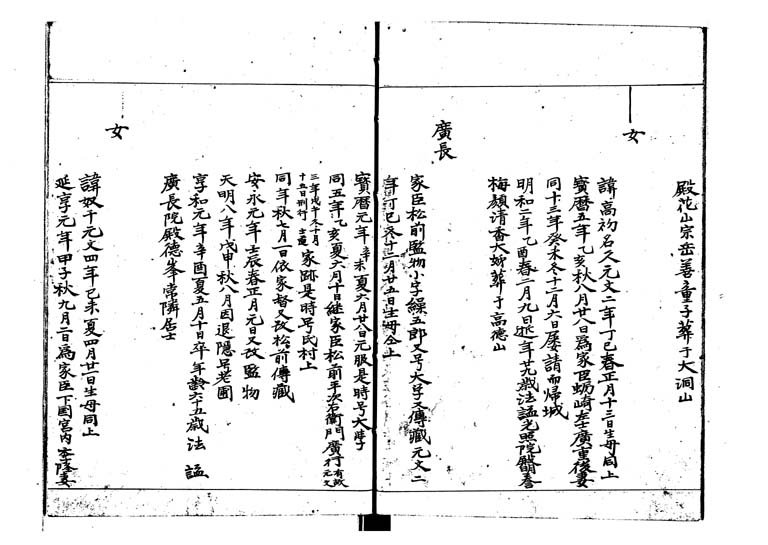 殿花山宗岳善童子葬于大洞山
女
諱高初名久元文二年丁巳春正月十三日生母同上
寶暦五年乙亥秋八月廿八日為家臣蛎崎左士廣重後妻
同十三年癸未冬十二月六日屡請而帰城
明和二年乙酉春二月九日逝年廿九歳法謚光照院馨春
梅顔清香大姉葬于高德山
廣長
家臣松前監物小字繰五郎又号大学又傳藏元文二
年丁巳冬十二月廿五日生母仝上
寶暦元年辛未夏六月廿八日元服是時号大学
同五年乙亥夏六月十日継家臣松前平次右衛門廣行有故元文
三年戊午冬十月十五日刑行士道家跡是時号氏村上
同年秋七月一日依家督又改松前傳藏
安永元年壬辰春正月元日又改監物
天明八年戊申秋八月因退隠号老圃
享和元年辛酉夏五月十日卒年齢六十五歳法謚
廣長院殿德峯常隣居士
女
諱奴于元文四年己未夏四月廿一日生母同上
延享元年甲子秋九月二日爲家臣下國宮内季隆妻